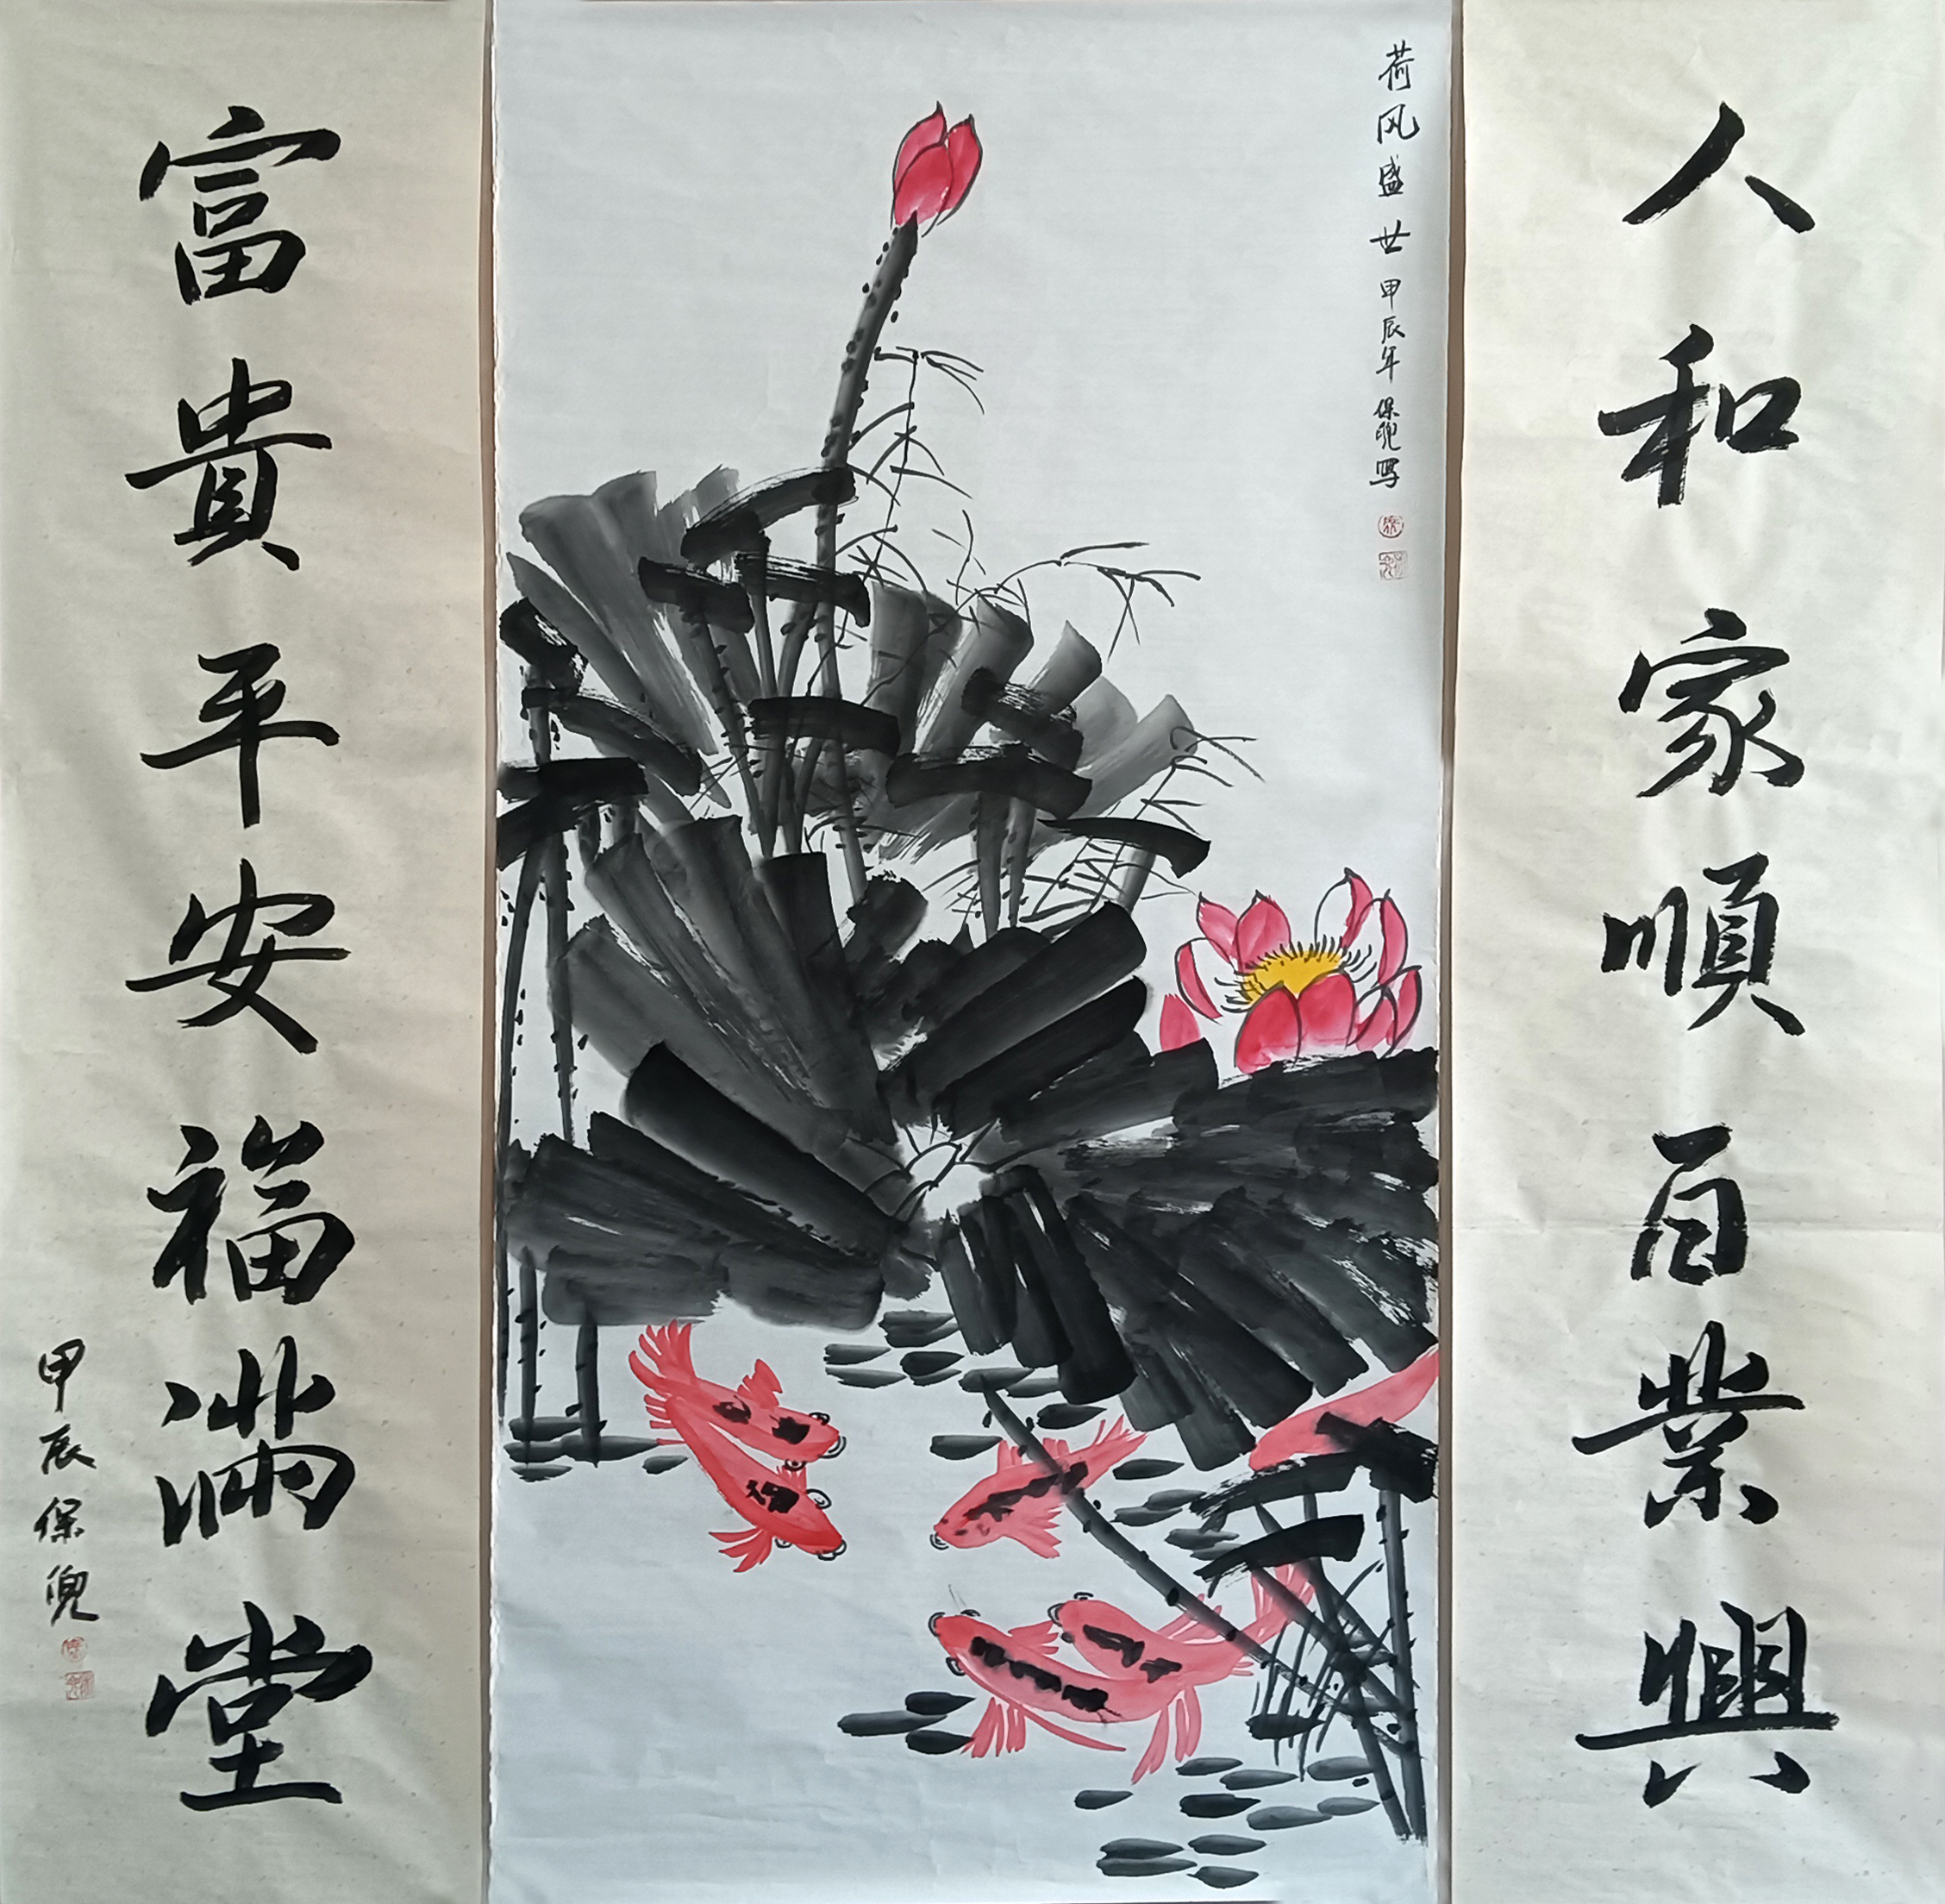 人和家順百業興
荷风盛世 甲辰年 保倪写
富貴平安福滿堂
甲辰保倪